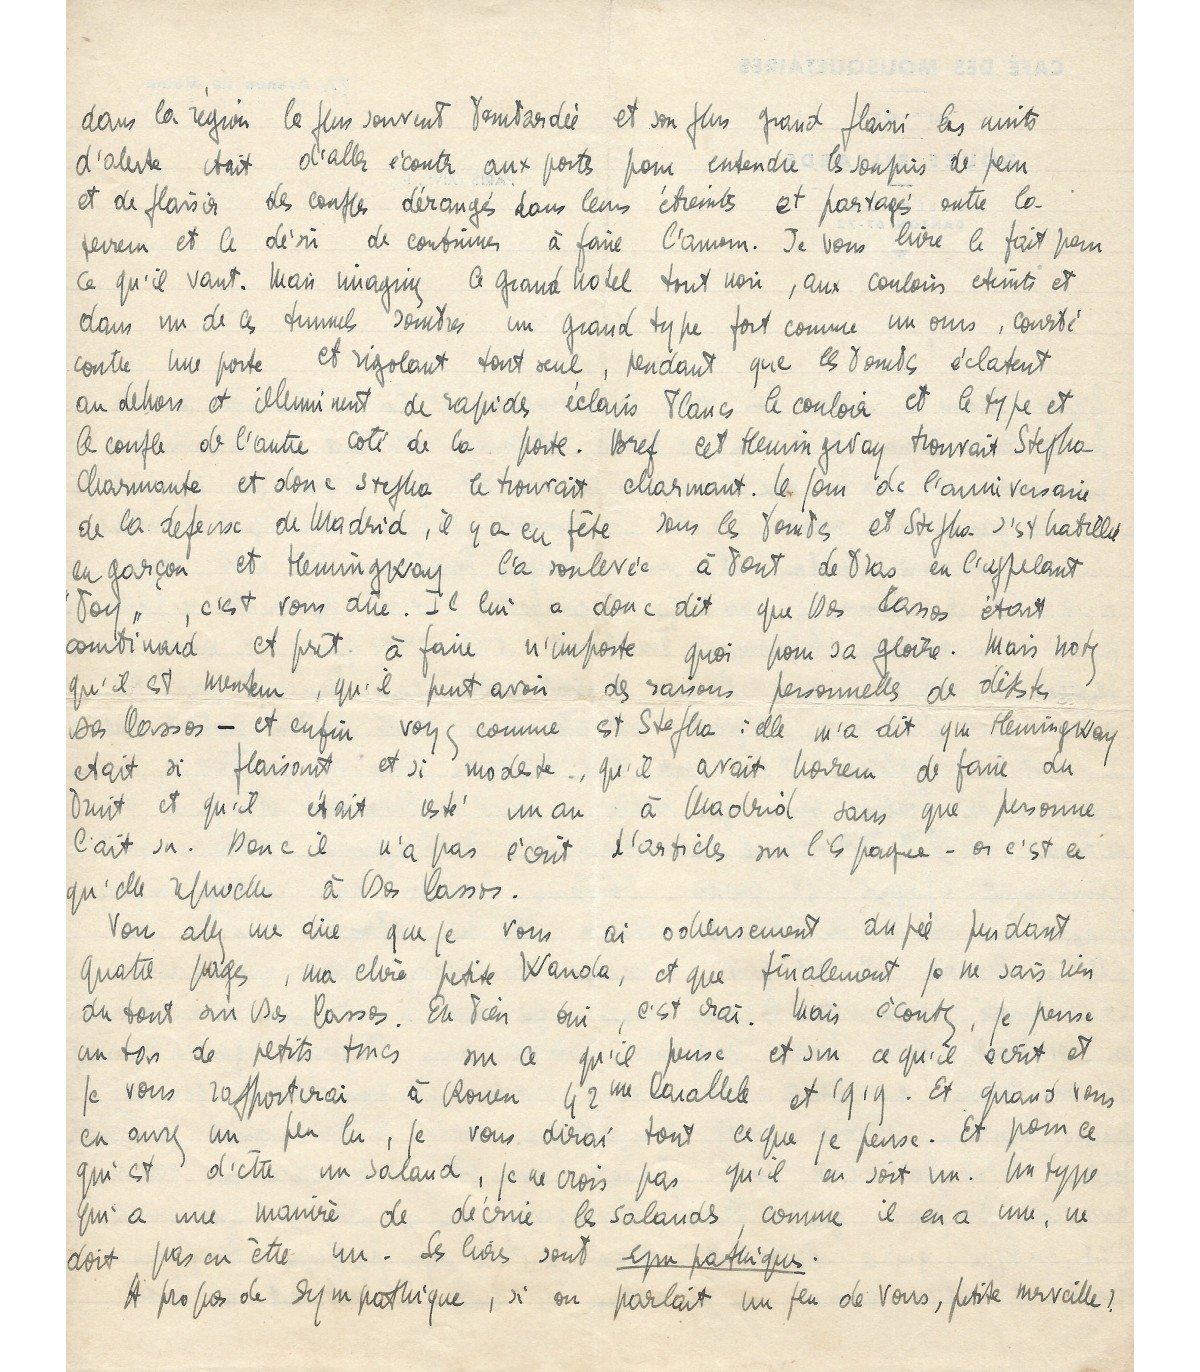 CAFÉ DES MOUSQUETAIRES
dans la région la plus souvent bombardée et son plus grand plaisir les nuits
d'alerte était d'aller écouter aux portes pour entendre les soupirs de peur
et de plaisir des couples dérangés dans leurs étreintes et partagés entre la
terreur et le désir de continuer à faire l'amour. Je vous livre le fait pour
ce qu'il vaut. Mais imaginez ce grand hôtel tout noir, aux couloirs éteints et
dans un de ces tunnels sombres un grand type fort comme un ours, courbé
contre une porte et rigolant tout seul, pendant que les bombes éclatent
au dehors et illuminent de rapides éclairs blancs le couloir et le type et
le couple de l'autre coté de la porte. Bref cet Hemingway trouvait Stepha
charmante et donc Stepha le trouvait charmant. Le jour de l'anniversaire
de la defense de Madrid, il y a eu fête sous les bombes et Stepha s'est habillée
en garçon et Hemingway l'a soulevée à bout de bras en l'appelant
"Boy", c'est vous dire. Il lui a donc dit que Dos Passos étant
combinard et prêt à faire n'importe quoi pour sa gloire. Mais notez
qu'il est menteur, qu'il peut avoir des raisons personnelles de détester
Dos Passos – et enfin voyez comme est Stepha : elle m'a dit que Hemingway
était si plaisant et si modeste, qu'il avait horreur de faire du
bruit et qu'il était resté un an à Madrid sans que personne
l'ait su. Donc il n'a pas écrit d'articles sur l'Espagne – or c'est ce
qu'elle reproche à Dos Passos.
Vous allez me dire que je vous ai odieusement dupée pendant
quatre pages, ma chère petite Wanda, et que finalement je ne sais rien
du tout sur Dos Passos. Eh bien oui, c'est vrai. Mais écoutez, je pense
un tas de petits trucs sur ce qu'il pense et sur ce qu'il écrit et
je vous rapporterai à Rouen 42me Parallèle et 1919. Et quand vous
en aurez un peu lu, je vous dirai tout ce que je pense. Et pour ce
qui est d'être un salaud, je ne crois pas qu'il en soit un. Un type
qui a une manière de décrire les salauds, comme il en a une, ne
doit pas en être un. Ses livres sont sympathiques.
A propos de sympathique, si on parlait un peu de vous, petite merveille?